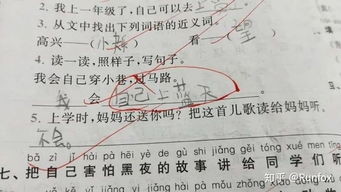 2. 我上一年级了,自己可以去上
3. 从文中找出下列词语的近义词。
高兴—( ) 看—(望)
4. 读一读,照样子,写句子。
我会自己穿小巷,过马路。
我 会 自己上蓝天
5. 上学时,妈妈还送你吗?把这首儿歌读给妈妈听。
不会。
bǎ zì jǐ hài pà hēi yè de gù shi jiǎng gěi tóng xué men
七、把自己害怕黑夜的故事讲给同学们听
知乎 @Runfox